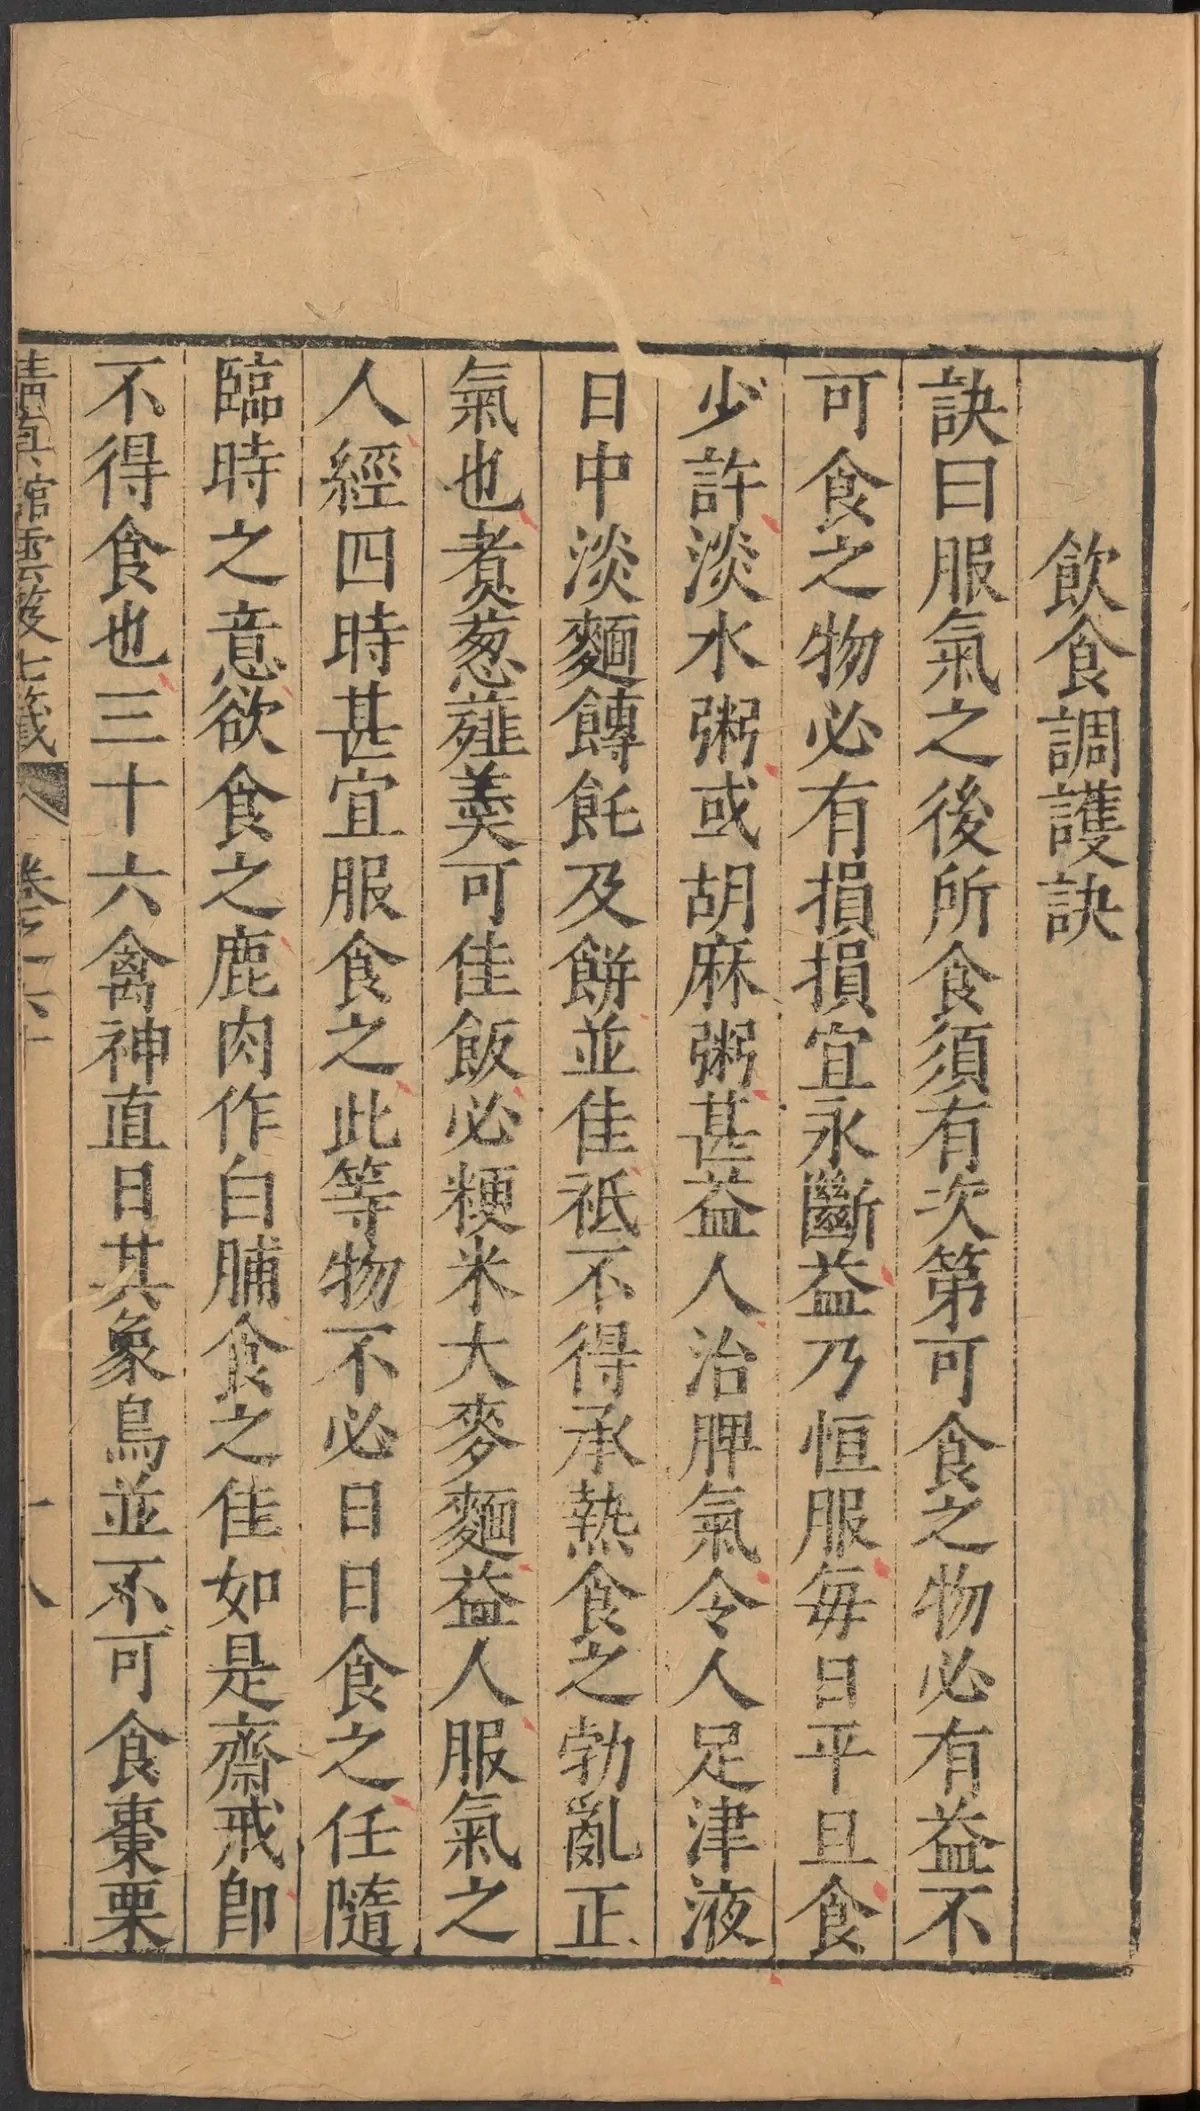 飲食調護訣
訣曰服氣之後所食須有次第可食之物必有益不
可食之物必有損損宜永斷益乃恒服每日平旦食
少許淡水粥或胡麻粥甚益人治脾氣令人足津液
日中淡麵餺飥及餅並佳祗不得承熱食之勃亂正
氣也煑葱薤羹可佳飯必粳米大麥麵益人服氣之
人經四時甚宜服食之此等物不必日日食之任隨
臨時之意欲食之鹿肉作白脯食之佳如是齋戒卽
不得食也三十六禽神直日其象鳥並不可食棗栗
清真館雲笈七籤 卷之六十 十八